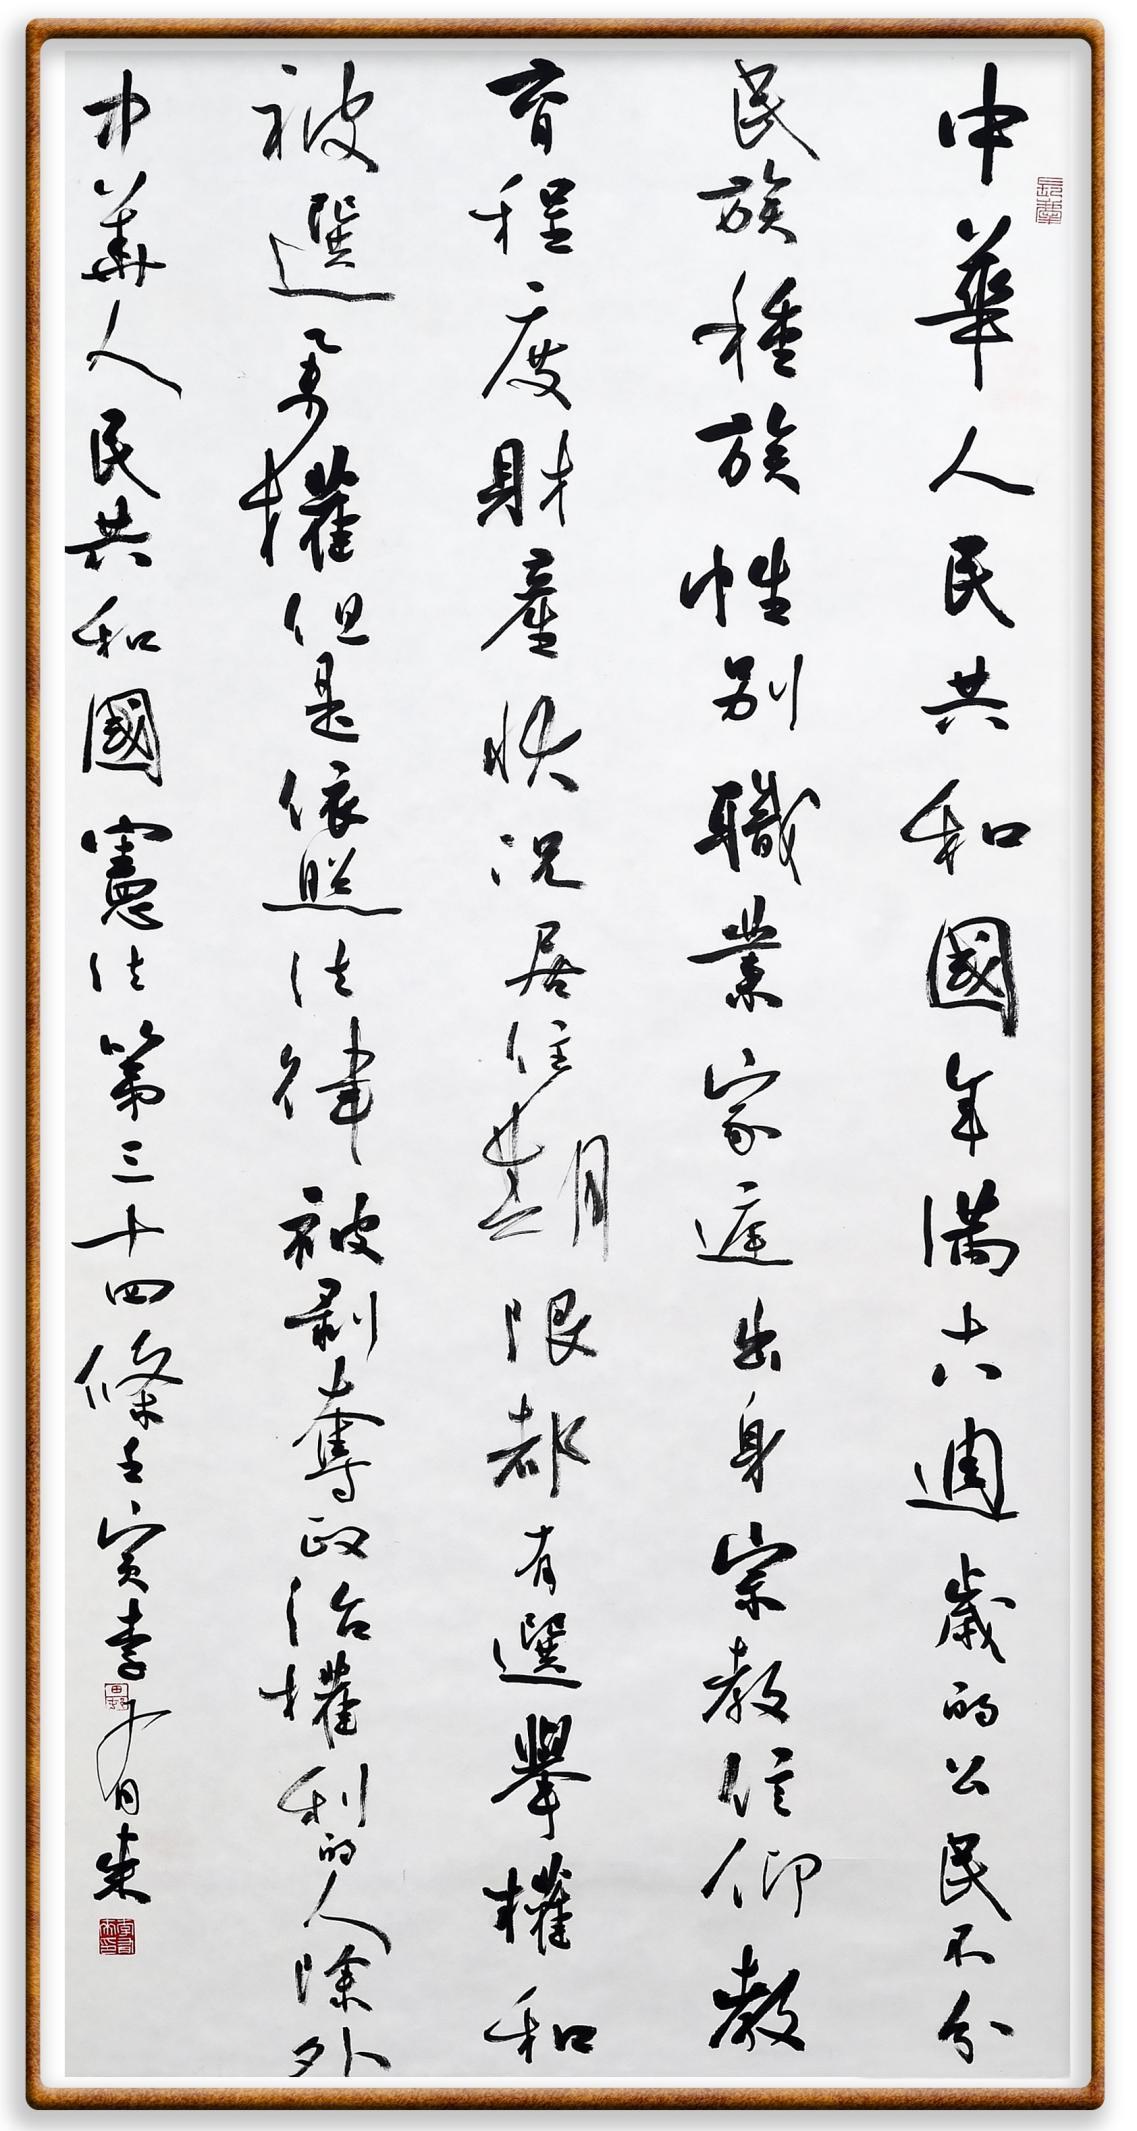 中華人民共和國年滿十八週歲的公民不分
民族種族性别職業家庭出身宗教信仰教
育程度財産狀況居住期限都有選舉權和
被選舉權但是依照法律被剥奪政治權利的人除外
中華人民共和國憲法第三十四條壬寅李有來